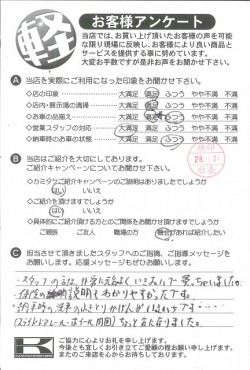 軽
お客様アンケート
当店では、お買い上げ頂いたお客様の声を可能
な限り現場に反映し、お客様により良い商品と
サービスを提供する事に努めています。
大変お手数ですが是非お声をお聞かせ下さい。
A 当店を実際にご利用になった印象をお聞かせ下さい。
◇店の印象 大満足 満足 ふつう やや不満 不満
◇店内・展示場の清掃 大満足 満足 ふつう やや不満 不満
◇お車の品揃え 大満足 満足 ふつう やや不満 不満
◇営業スタッフの対応 大満足 満足 ふつう やや不満 不満
◇納車時のお車の状態 大満足 満足 ふつう やや不満 不満
B 当店はご紹介を大切にしております。
ご紹介キャンペーンについてお聞かせ下さい。
◇カミタケご紹介キャンペーンのご説明はありましたでしょうか
はい いいえ
◇ご紹介を頂けますでしょうか
はい いいえ
◇具体的にご紹介頂ける方とのご関係をお聞かせ頂けますでしょうか
ご親族 ご友人 職場の方 機会があれば紹介したい
社長
C 担当させて頂きましたスタッフへのご指摘、ご指導メッセージを
お願いします。応援メッセージもぜひお願いします。
スタッフの方は
説明もわかりやすかったです。
ちょっと気になりました。
K
ご協力に心よりお礼を申し上げます。
今後とも宜しくお引き立てご愛顧の程お願い申し上げます。
またのご来店を心からお待ちしております。